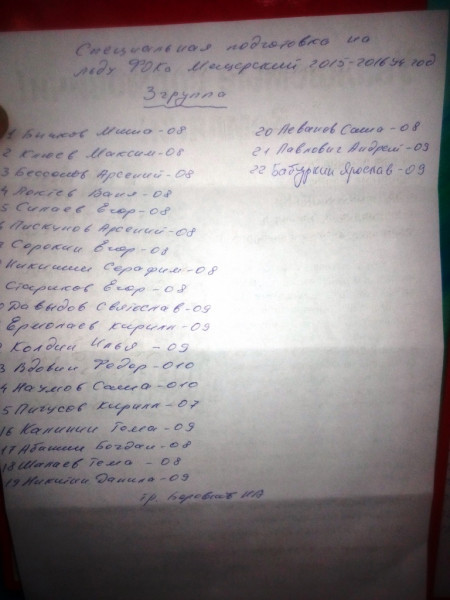 Специальная подготовка на
льду ФОКа Мещерский 2015-2016 уч год
3 группа
1 Бычков Миша-08
2 Клюев Максим-08
3 Бессонов Арсений-08
4 Локтев Ваня-08
5 Сипаев Егор-08
6 Пискунов Арсений-08
Сорокин Егор-08
Никишин Серафим-08
Стариков Егор-08
Давыдов Святослав-09
Ермолаев Кирилл-09
Колдин Илья-09
3 Вдовин Федор-010
4 Наумов Саша-010
5 Пигусов Кирилл-07
16 Калинин Тема-09
17 Абашин Богдан-08
18 Шипаев Тема-08
19 Никитин Данила-09
Тр.
20 Леванов Саша-08
21 Павлович Андрей-09
22 Бабуркин Ярослав-09